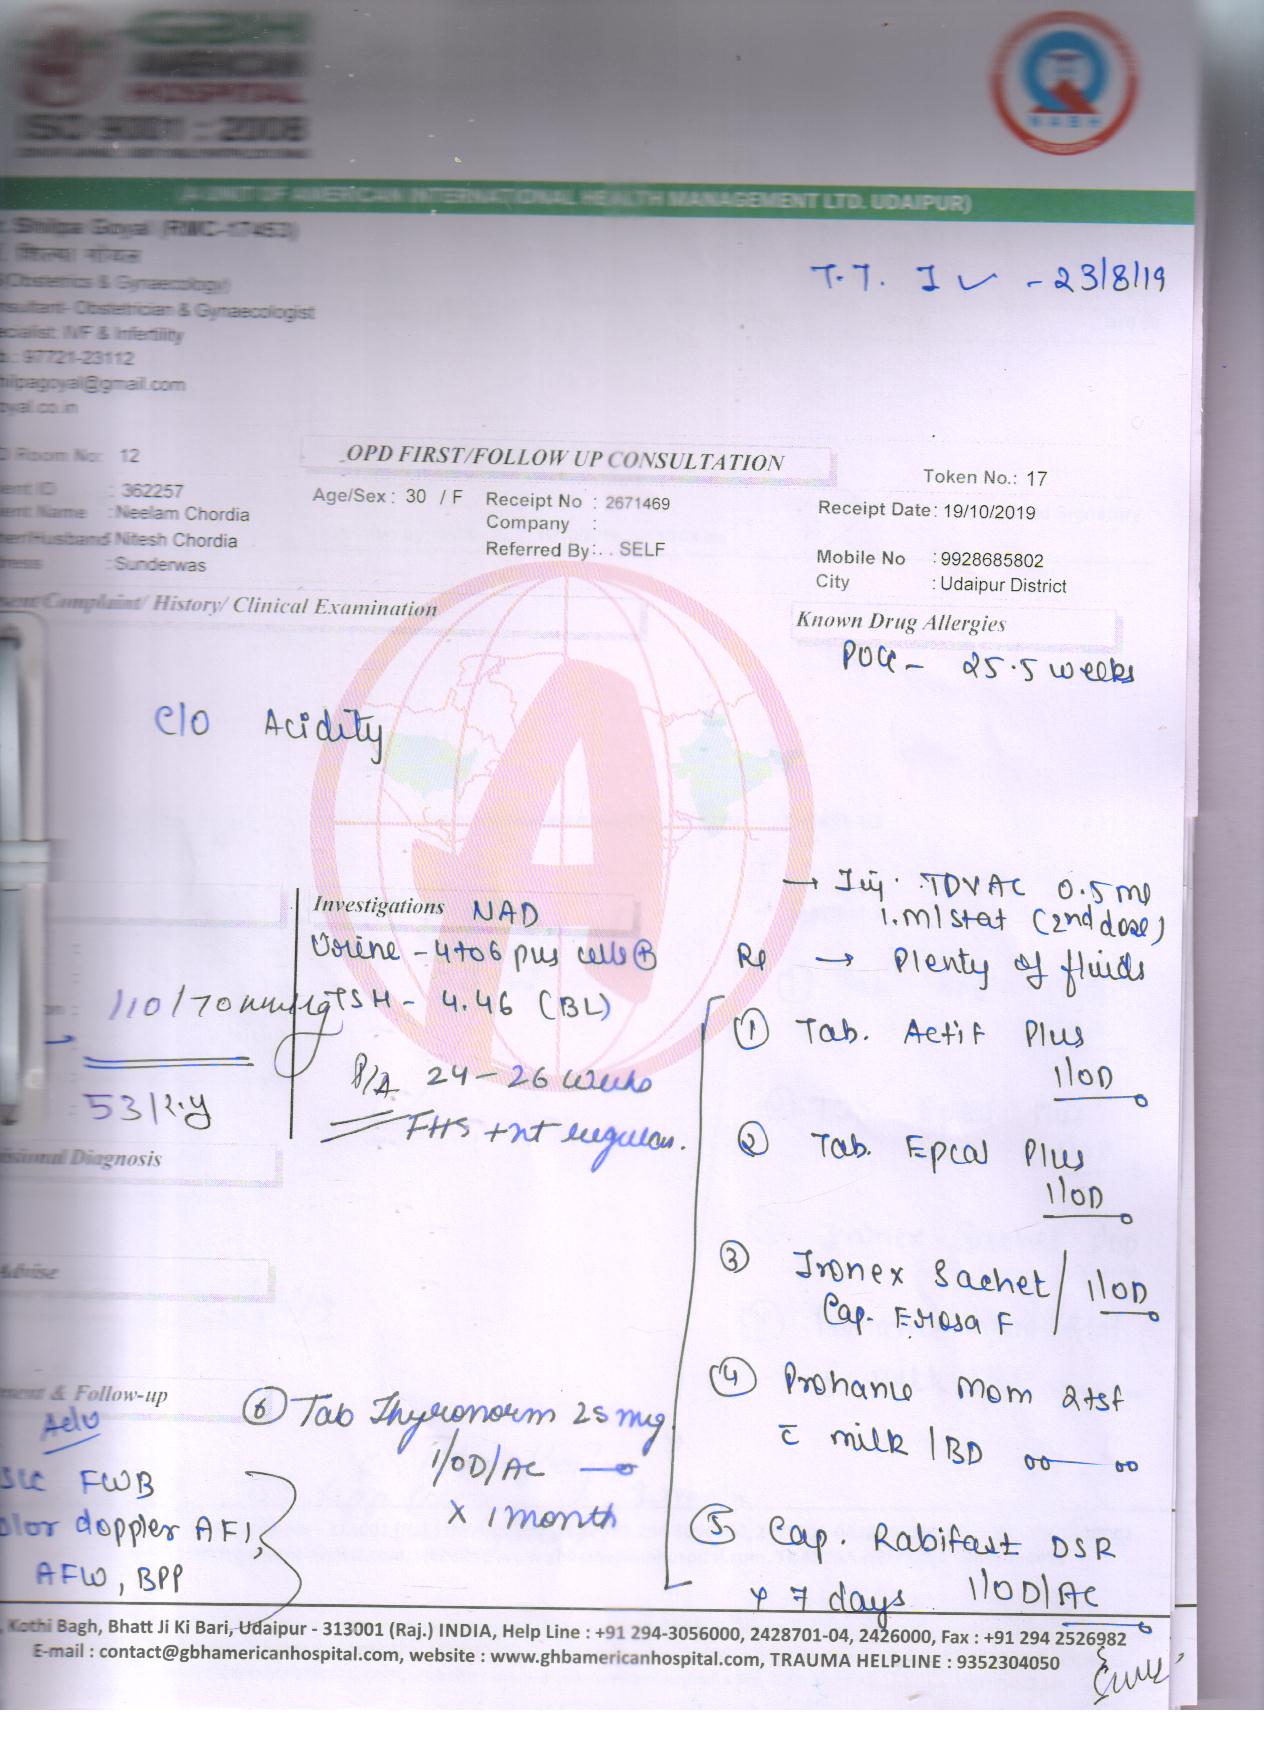 GBH
AMERICAN
HOSPITAL
ISO 9001 : 2008
NABH
(A UNIT OF AMERICAN INTERNATIONAL HEALTH MANAGEMENT LTD. UDAIPUR)
Shilpa Goyal (RMC-17453)
शिल्पा गोयल
(Obstetrics & Gynaecology)
Obstetrician & Gynaecologist
IVF & Infertility
: 97721-23112
hilpagoyal@gmail.com
oyal.co.in
T.T. I ✓ - 23/8/19
Room No: 12
OPD FIRST/FOLLOW UP CONSULTATION
Token No.: 17
ent ID : 362257
Age/Sex : 30 / F
Receipt No : 2671469
Receipt Date: 19/10/2019
ent Name : Neelam Chordia
Company :
her/Husband Nitesh Chordia
Referred By: . . SELF
Mobile No : 9928685802
ress : Sunderwas
City : Udaipur District
sent/Complaint/ History/ Clinical Examination
Known Drug Allergies
POG - 25.5 weeks
C/O Acidity
→ Inj. TDVAC 0.5 ml
I.M/Stat (2nd dose)
Investigations NAD
Urine - 4to6 pus cells ⊕
Rx → Plenty of fluids
110/70 mmHg
TSH - 4.46 (BL)
① Tab. Actif Plus
1/OD
P/A 24-26 weeks
53/kg
FHS +nt regular.
② Tab. Epcal Plus
1/OD
isional Diagnosis
③ Ironex Sachet / 1/OD
Cap. Emosa F
Advise
④ Prohance Mom 2tsf
c̄ milk / BD
ment & Follow-up
Adv
⑥ Tab Thyronorm 25 mcg
1/OD/AC
x 1 month
FWB
olor doppler AFI,
AFW, BPP
⑤ Cap. Rabifast DSR
x 7 days 1/OD/AC
Kothi Bagh, Bhatt Ji Ki Bari, Udaipur - 313001 (Raj.) INDIA, Help Line : +91 294-3056000, 2428701-04, 2426000, Fax : +91 294 2526982
E-mail : contact@gbhamericanhospital.com, website : www.ghbamericanhospital.com, TRAUMA HELPLINE : 9352304050